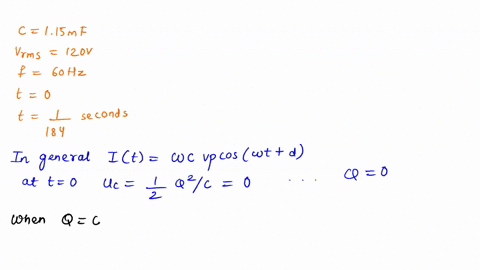 C = 1.15mF
Vrms = 120V
f = 60Hz
t = 0
t = 1/184 seconds
In general I(t) = ωc vp cos(ωt + d)
at t=0 Uc = 1/2 Q²/c = 0 . . . Q = 0
When Q = C